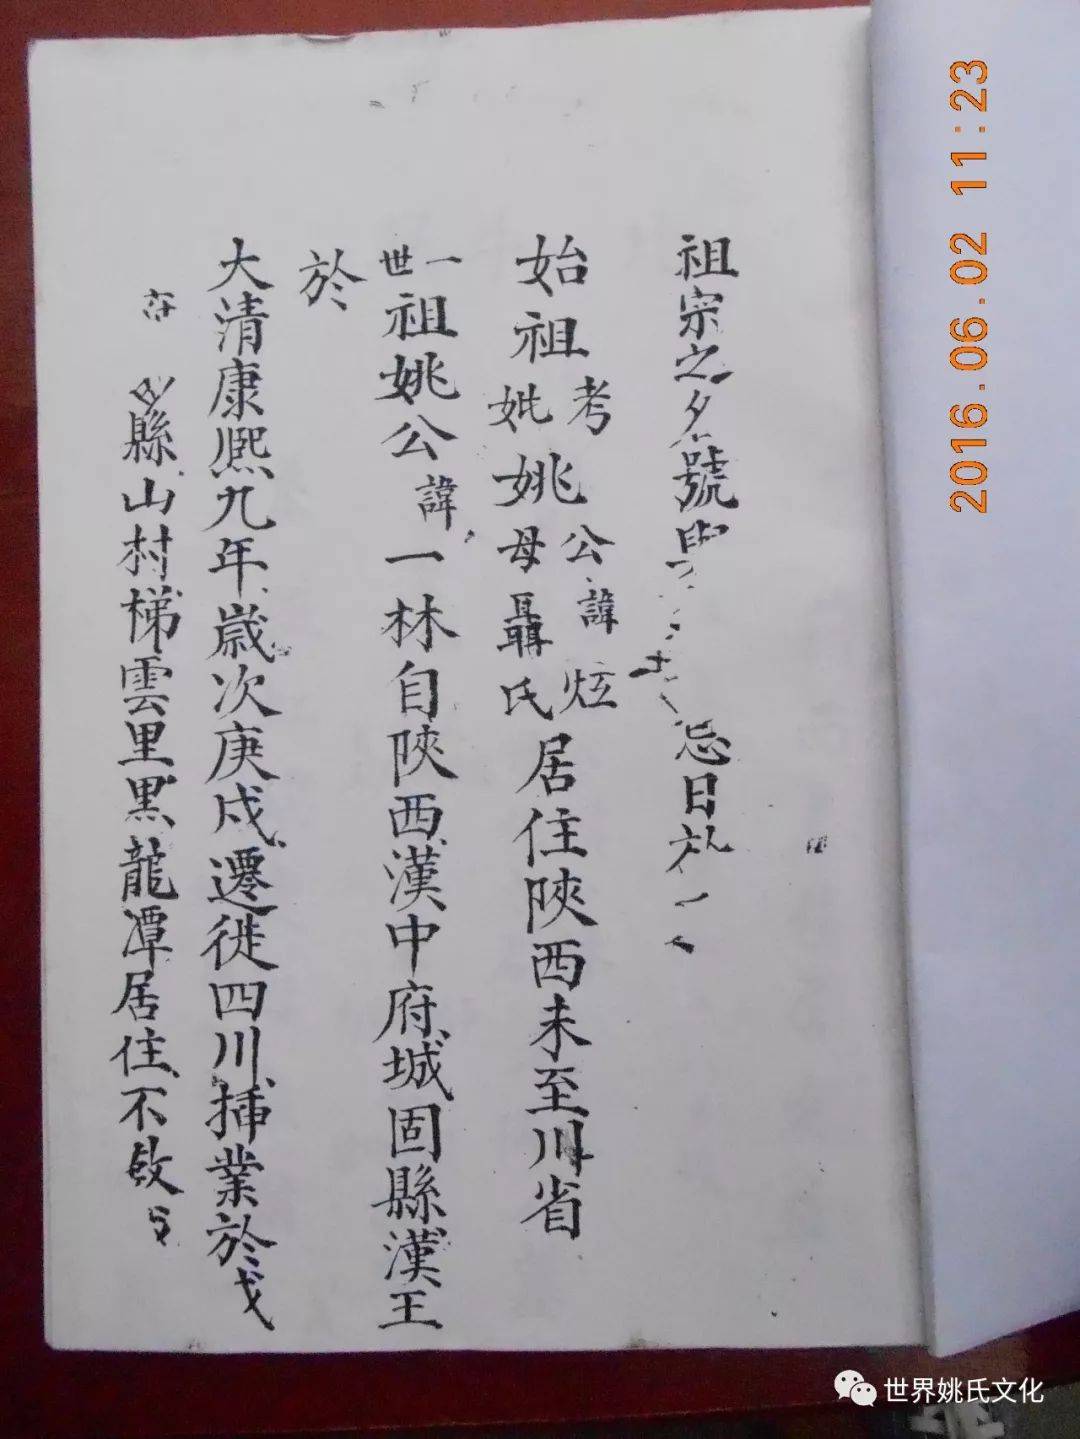 祖宗之名號與忌日於
始祖考妣姚公諱炫母聶氏居住陝西未至川省
一世祖姚公諱一林自陝西漢中府城固縣漢王
於
大清康熙九年歲次庚戌遷徙四川插業於
縣山村梯雲里黑龍潭居住不啟
2016.06.02 11:23
世界姚氏文化